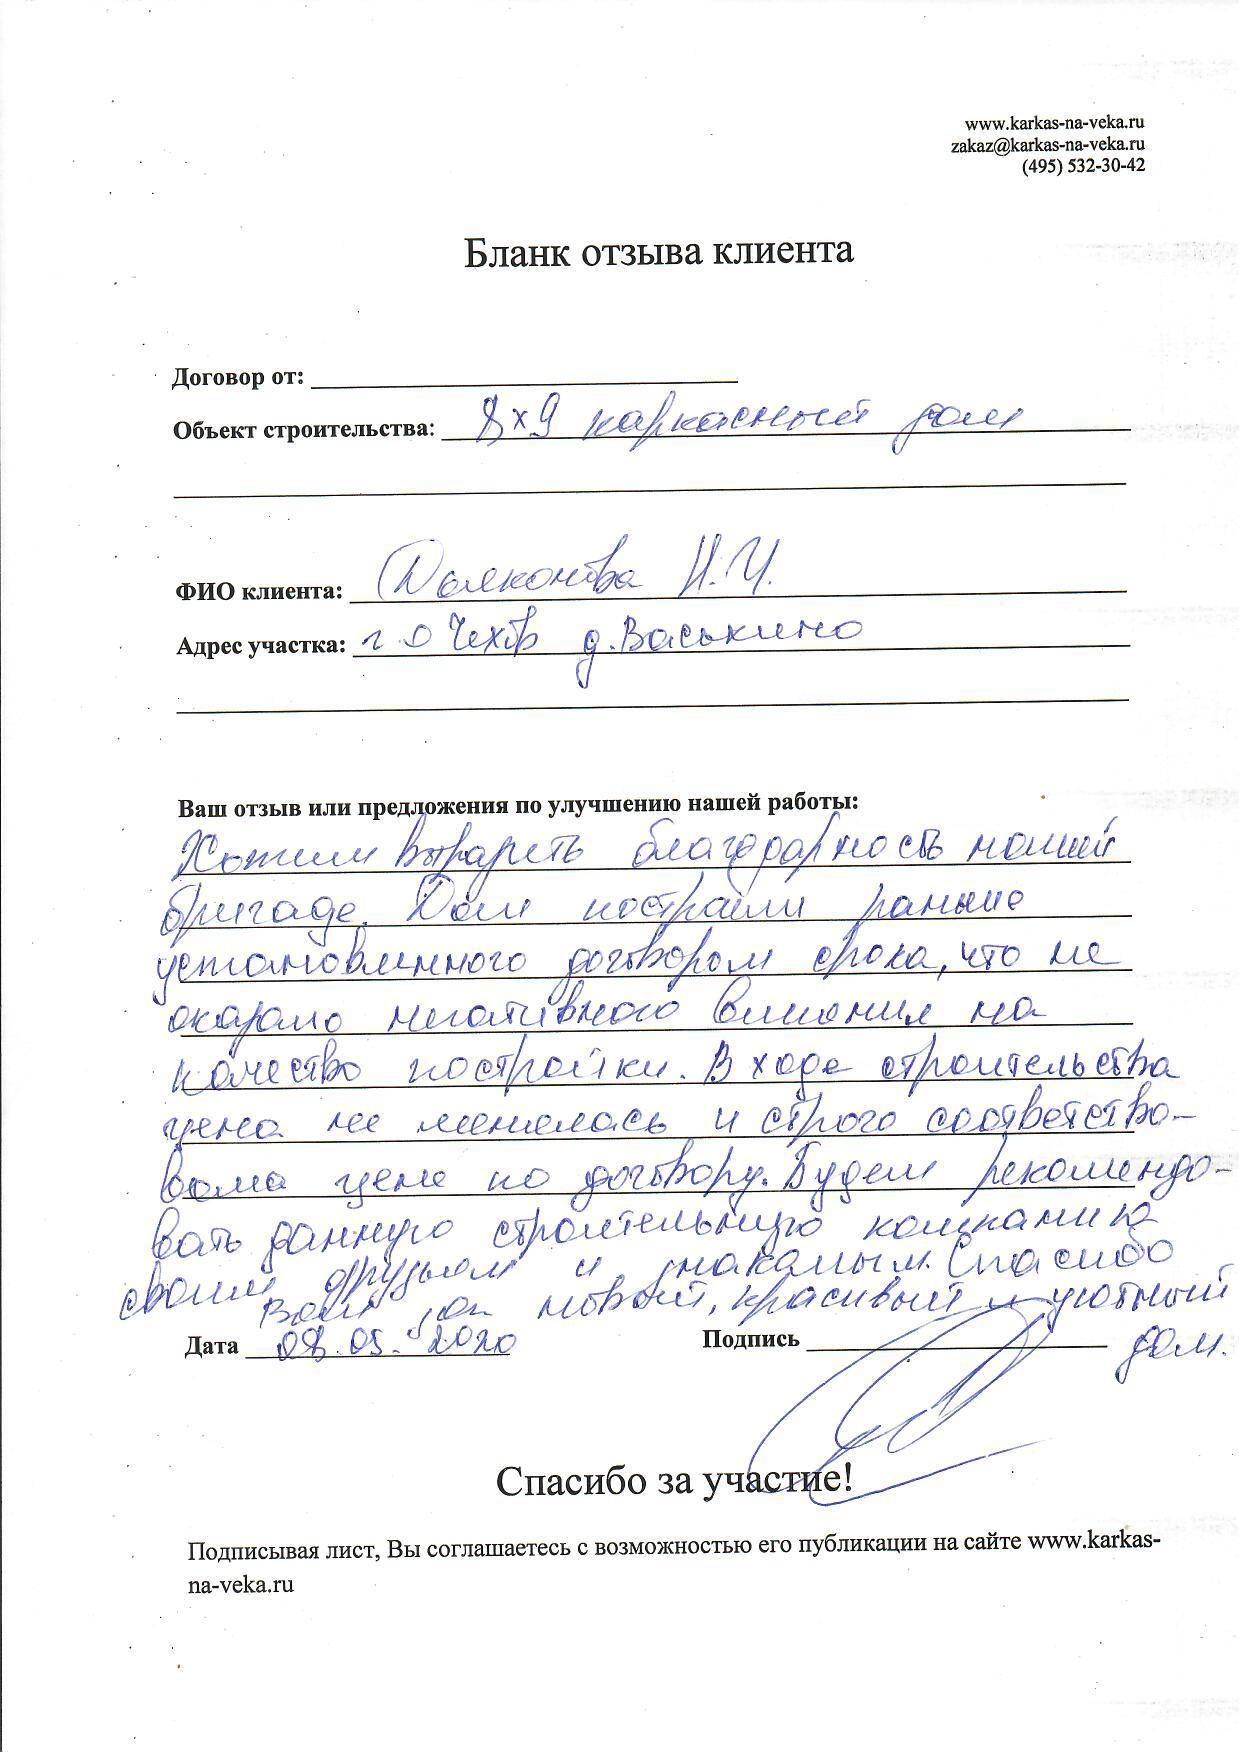 www.karkas-na-veka.ru
zakaz@karkas-na-veka.ru
(495) 532-30-42
Бланк отзыва клиента
Договор от:
Объект строительства: 8х9 каркасный дом
ФИО клиента: Н.И.
Адрес участка: г.о Чехов д.Васькино
Ваш отзыв или предложения по улучшению нашей работы:
Хотим выразить благодарность нашей
бригаде. Дом построили раньше
установленного договором срока, что не
оказало негативного влияния на
качество постройки. В ходе строительства
цена не менялась и строго соответство-
вала цене по договору. Будем рекомендо-
вать данную строительную компанию
своим друзьям и знакомым. Спасибо
Вам за новый, красивый и уютный
дом.
Дата 08.05.2020 Подпись
Спасибо за участие!
Подписывая лист, Вы соглашаетесь с возможностью его публикации на сайте www.karkas-
na-veka.ru